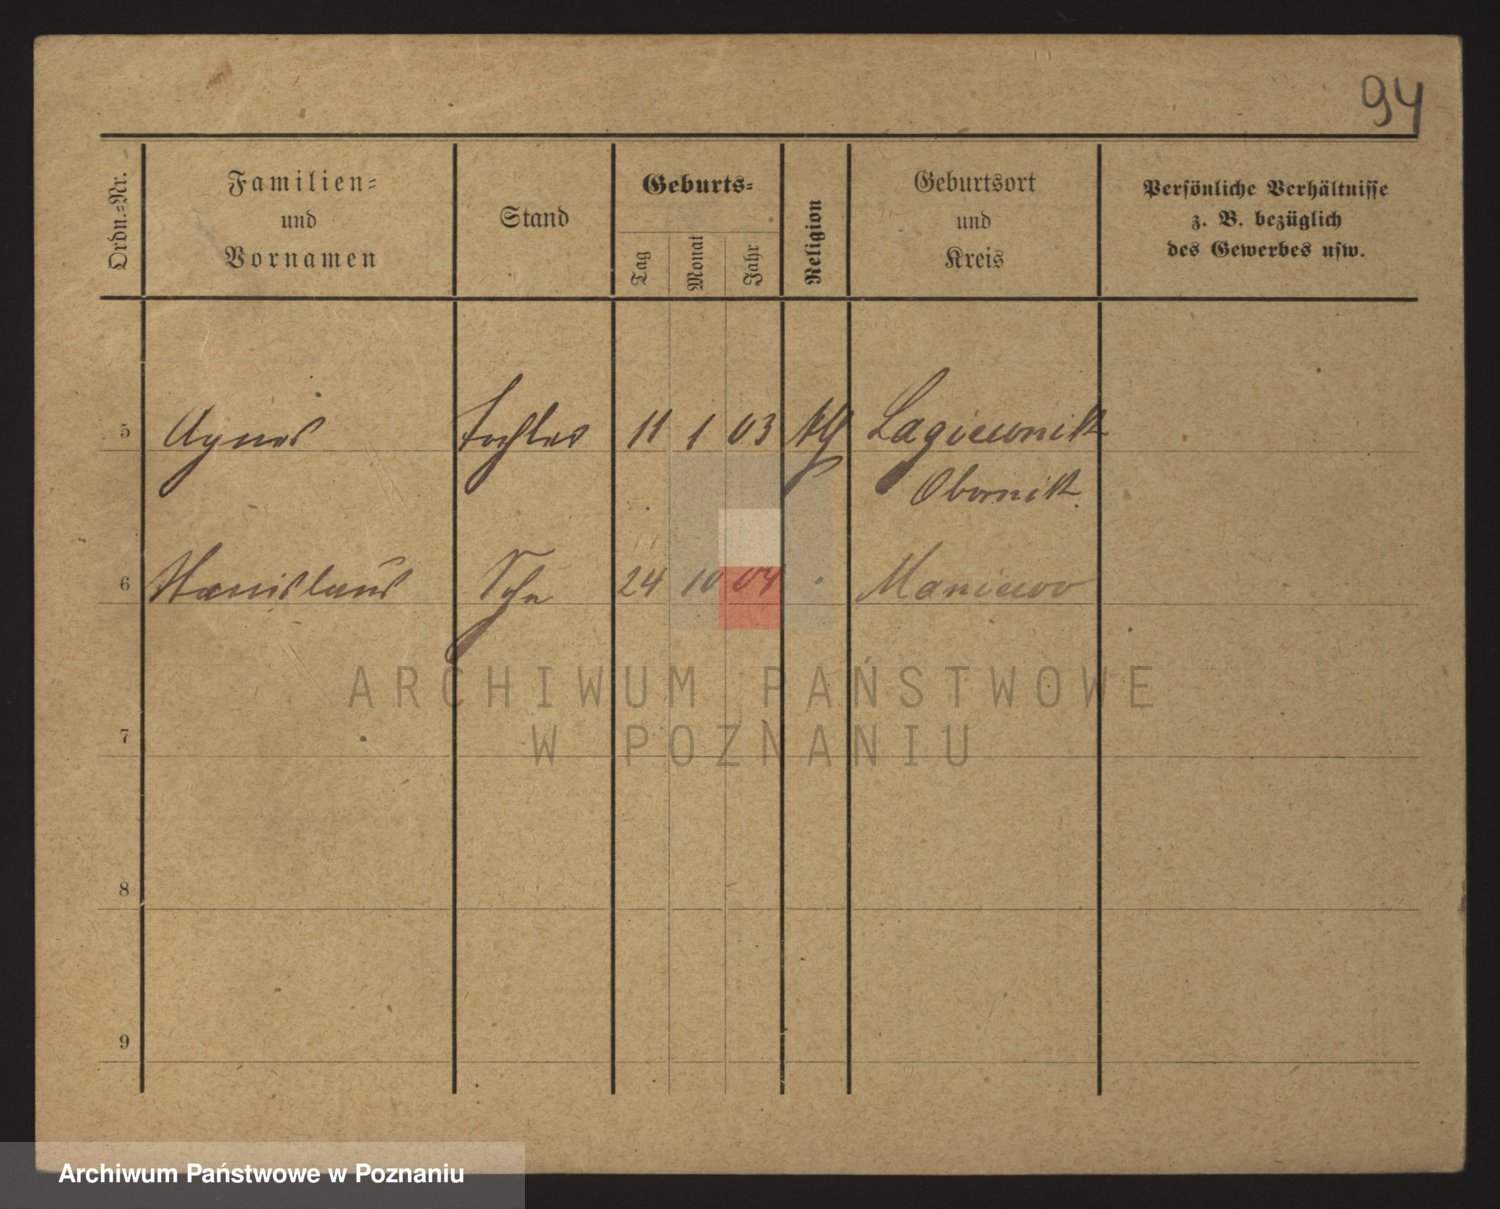 94
Ordn.-Nr.
Familien-
und
Vornamen
Stand
Geburts-
Tag
Monat
Jahr
Religion
Geburtsort
und
Kreis
Persönliche Verhältnisse
z. B. bezüglich
des Gewerbes usw.
5 Agnes Tochter 11 1 03 kth Lagiewnik
Obornik
6 Stanislaus Sohn 24 10 04 " Maniewo
7
8
9
ARCHIWUM PAŃSTWOWE
W POZNANIU
Archiwum Państwowe w Poznaniu